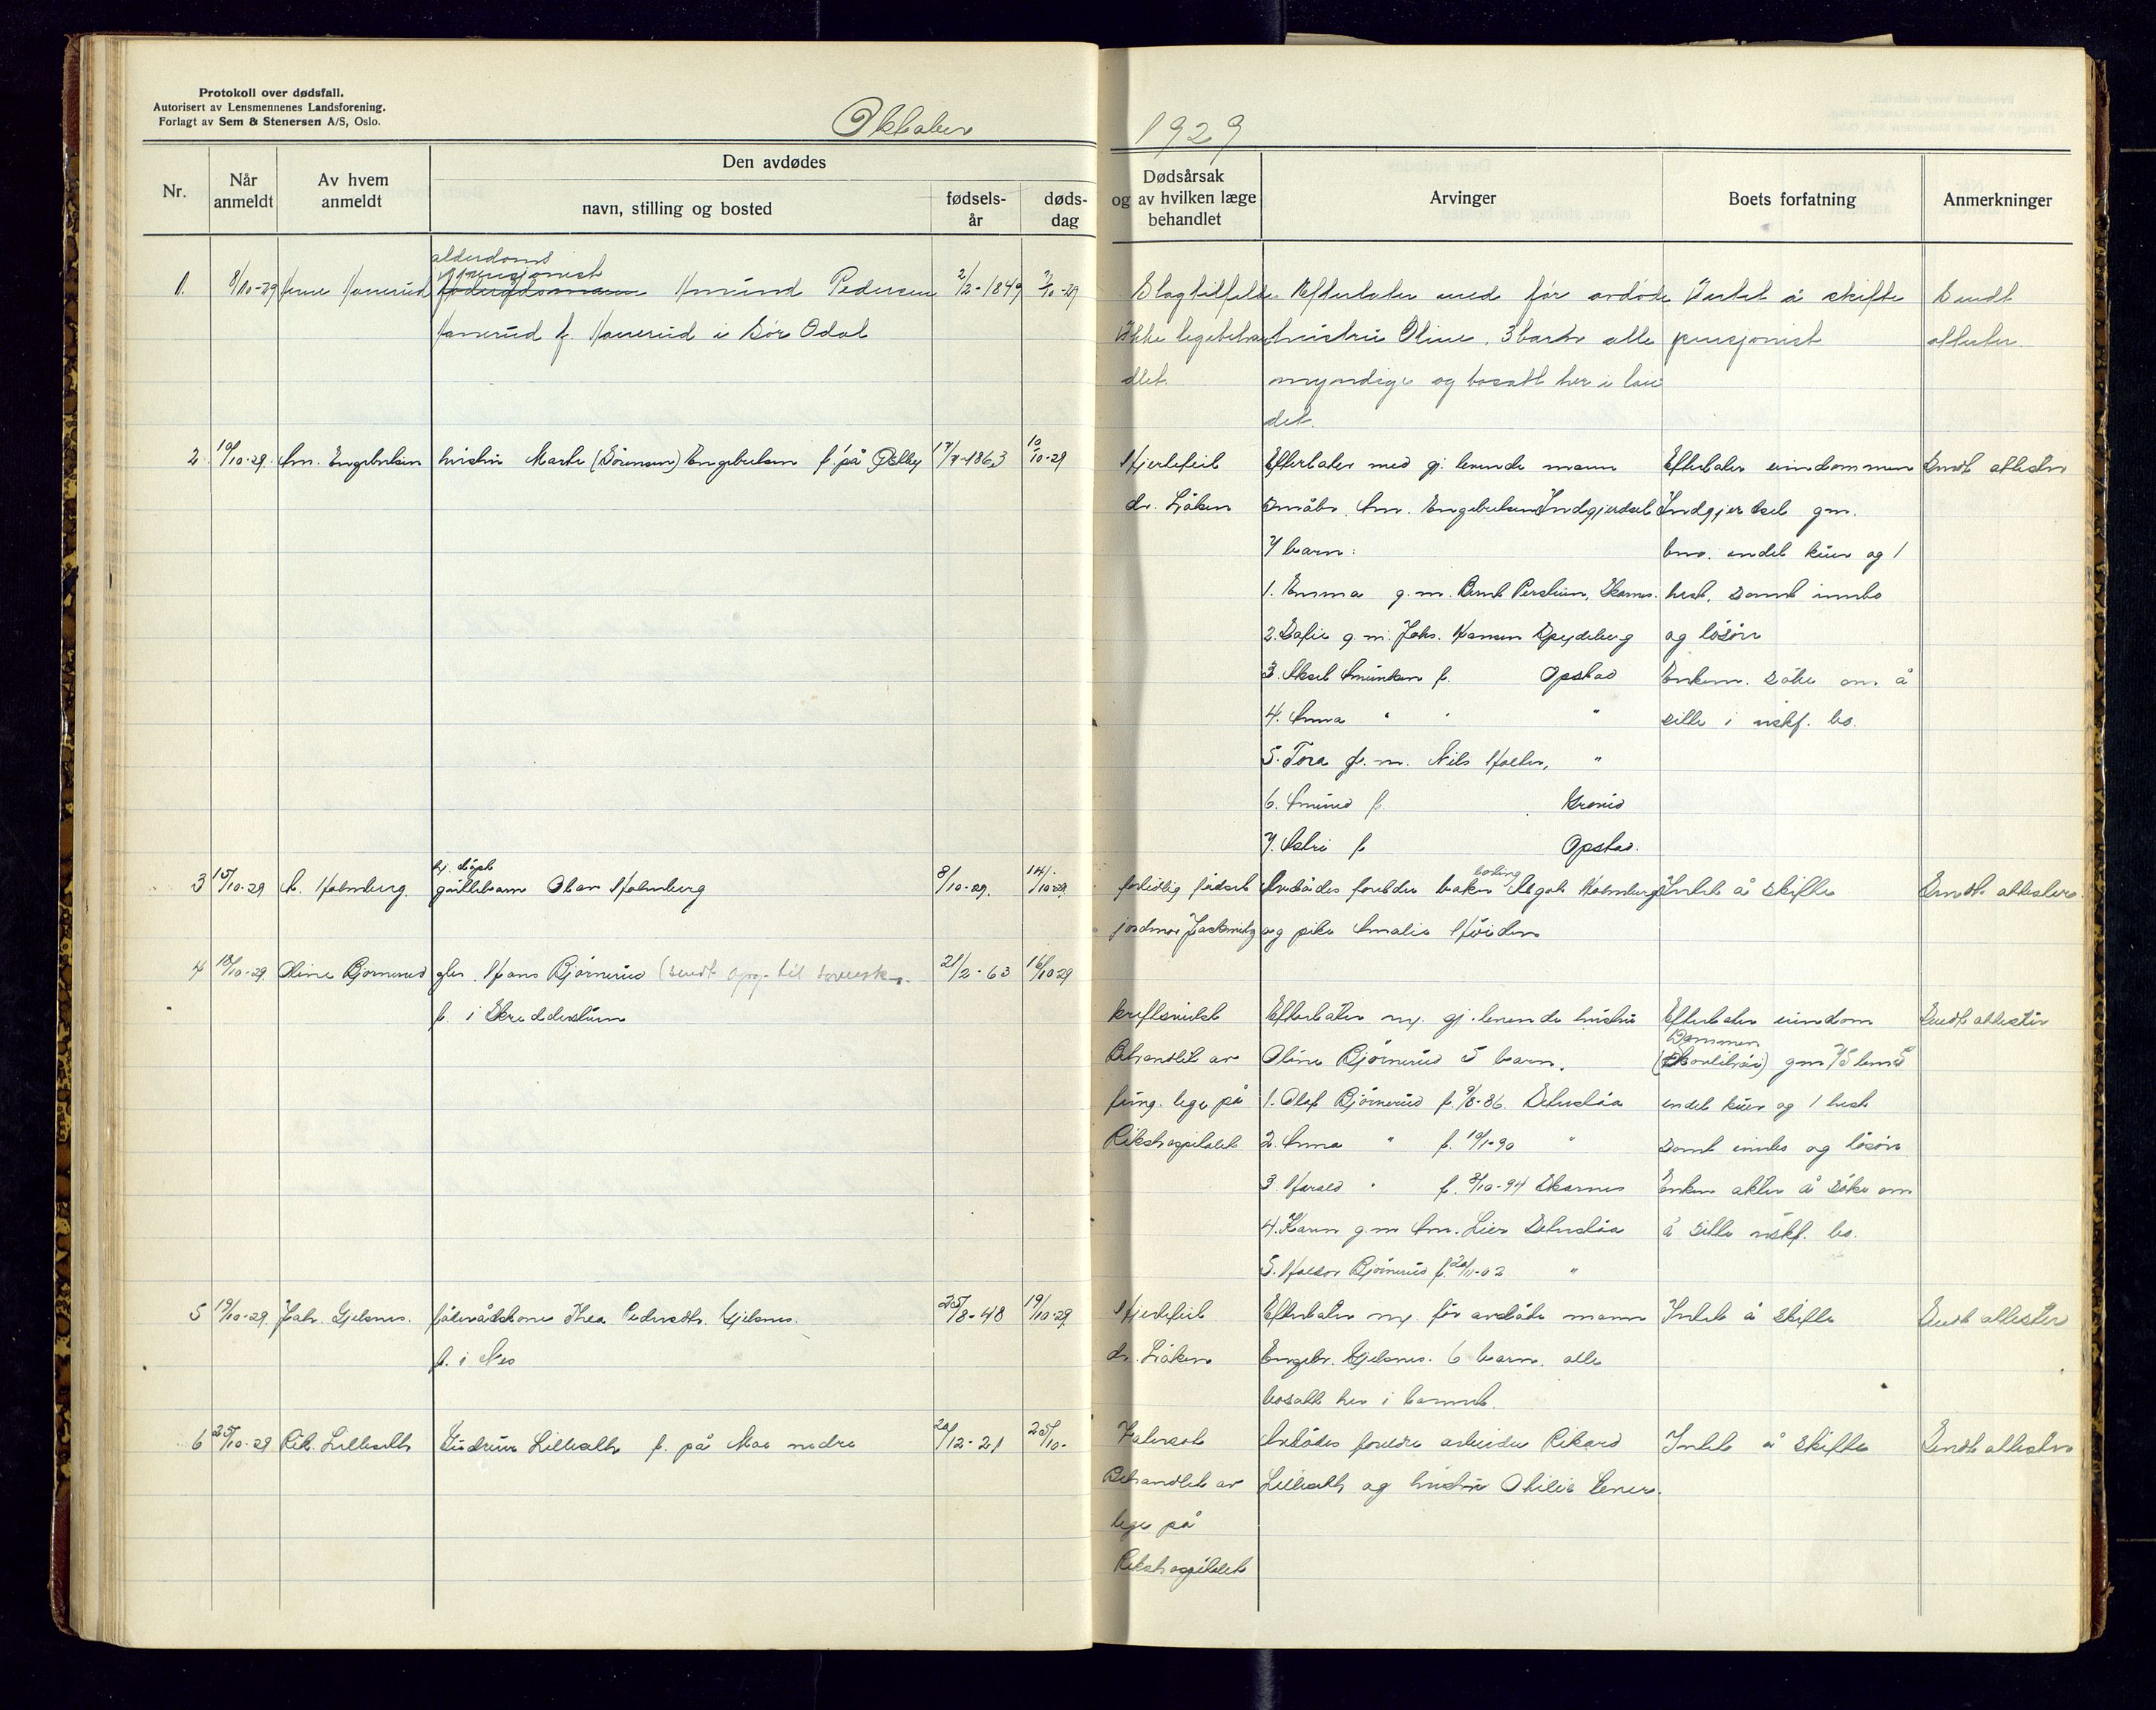 Protokoll over dødsfall.
Autorisert av Lensmennenes Landsforening.
Forlagt av Sem & Stenersen A/S, Oslo.
Oktober 1929
Nr.
Når anmeldt
Av hvem anmeldt
Den avdødes
navn, stilling og bosted
fødsels-år
døds-dag
Dødsårsak og av hvilken læge behandlet
Arvinger
Boets forfatning
Anmerkninger
alderdoms
pensjonist
1. 8/10-29 Hanerud Amund Pedersen 2/2-1849 7/10-29
Hanerud f. Hanerud i Sör Odal
Slagtilfelde
Ikke legebehan
dlet
Efterlater med før avdöde
hustru Oline, 3 barn alle
myndige og bosatt her i lan
det.
Intet å skifte
pensjonist
Sendt
attester
2 10/10-29. Am. Engebretsen hustru Marte (Sörensen) Engebretsen f. på 17/7-1863 10/10-29
Hjertefeil
dr. Liåken
Efterlater med gj. levende mann
småbr. Am. Engebretsen Indgjerdset
7 barn:
1. Emma g.m. Bernt Skarnes.
2. Sofie g.m. Johs. Hansen Spydeberg
3. Aksel Amundsen f. Opstad
4. Anna " " "
5. Tora g.m. Nils Holter, "
6. Amund f.
7. Astri f. Opstad.
Efterlater eiendommen
Indgjerdset gm.
bno. endel kuer og 1
hest, samt innbo
og lösöre
Enkem. söke om å
sitte i uskf. bo.
Sendt attester
3 15/10-29 A. Holmberg. guttebarn Olav Holmberg 8/10-29. 14/10-29
fortidlig födsel
jordmor
Avdödes foreldre baker Holmberg
og pike Amalie
Intet å skifte
Sendt attester.
4 18/10-29. Oline Bjørnerud gbr. Hans Bjørnerud (sendt opg. til sorensk. 21/2-63 16/10 29
f. i Skredderstuen
kreftsvulst
Behandlet av
fung. lege på
Rikshospitalet
Efterlater sig gj. levende hustru
Oline Bjørnerud 5 barn.
1. Olaf Bjørnerud f. 9/8-86. Setuslåa
2. Anna " f. 10/1-90 "
3. Harald " f. 3/10-94 Skarnes
4. Karen g.m Am. Lier Setuslåa
5. Halvor Bjørnerud f. 20/11-02 "
Efterlater eiendom
endel kuer og 1 hest
samt innbo og lösöre
Enken akter å söke om
å sitte uskf. bo.
Sendt attester
5 19/10-29. Joh. Gjelsnes. föderådskone Thea Pedersdtr. Gjelsnes. 25/8-48 19/10-29
f. i Nes
Hjertefeil
dr. Liåken
Efterlater sig før avdöde mann
Engebr. Gjelsnes. 6 barn, alle
bosatt her i landet.
Intet å skifte
Sendt attester
6 25/10-29 Rik. Lilleseth Gudrun Lilleseth f. på Moe nedre 20/12-21 25/10-
Behandlet av
lege på
Rikshospitalet
Avdödes foreldre arbeider Rikard
Lilleseth og hustru Otilie
Intet å skifte
Sendt attester